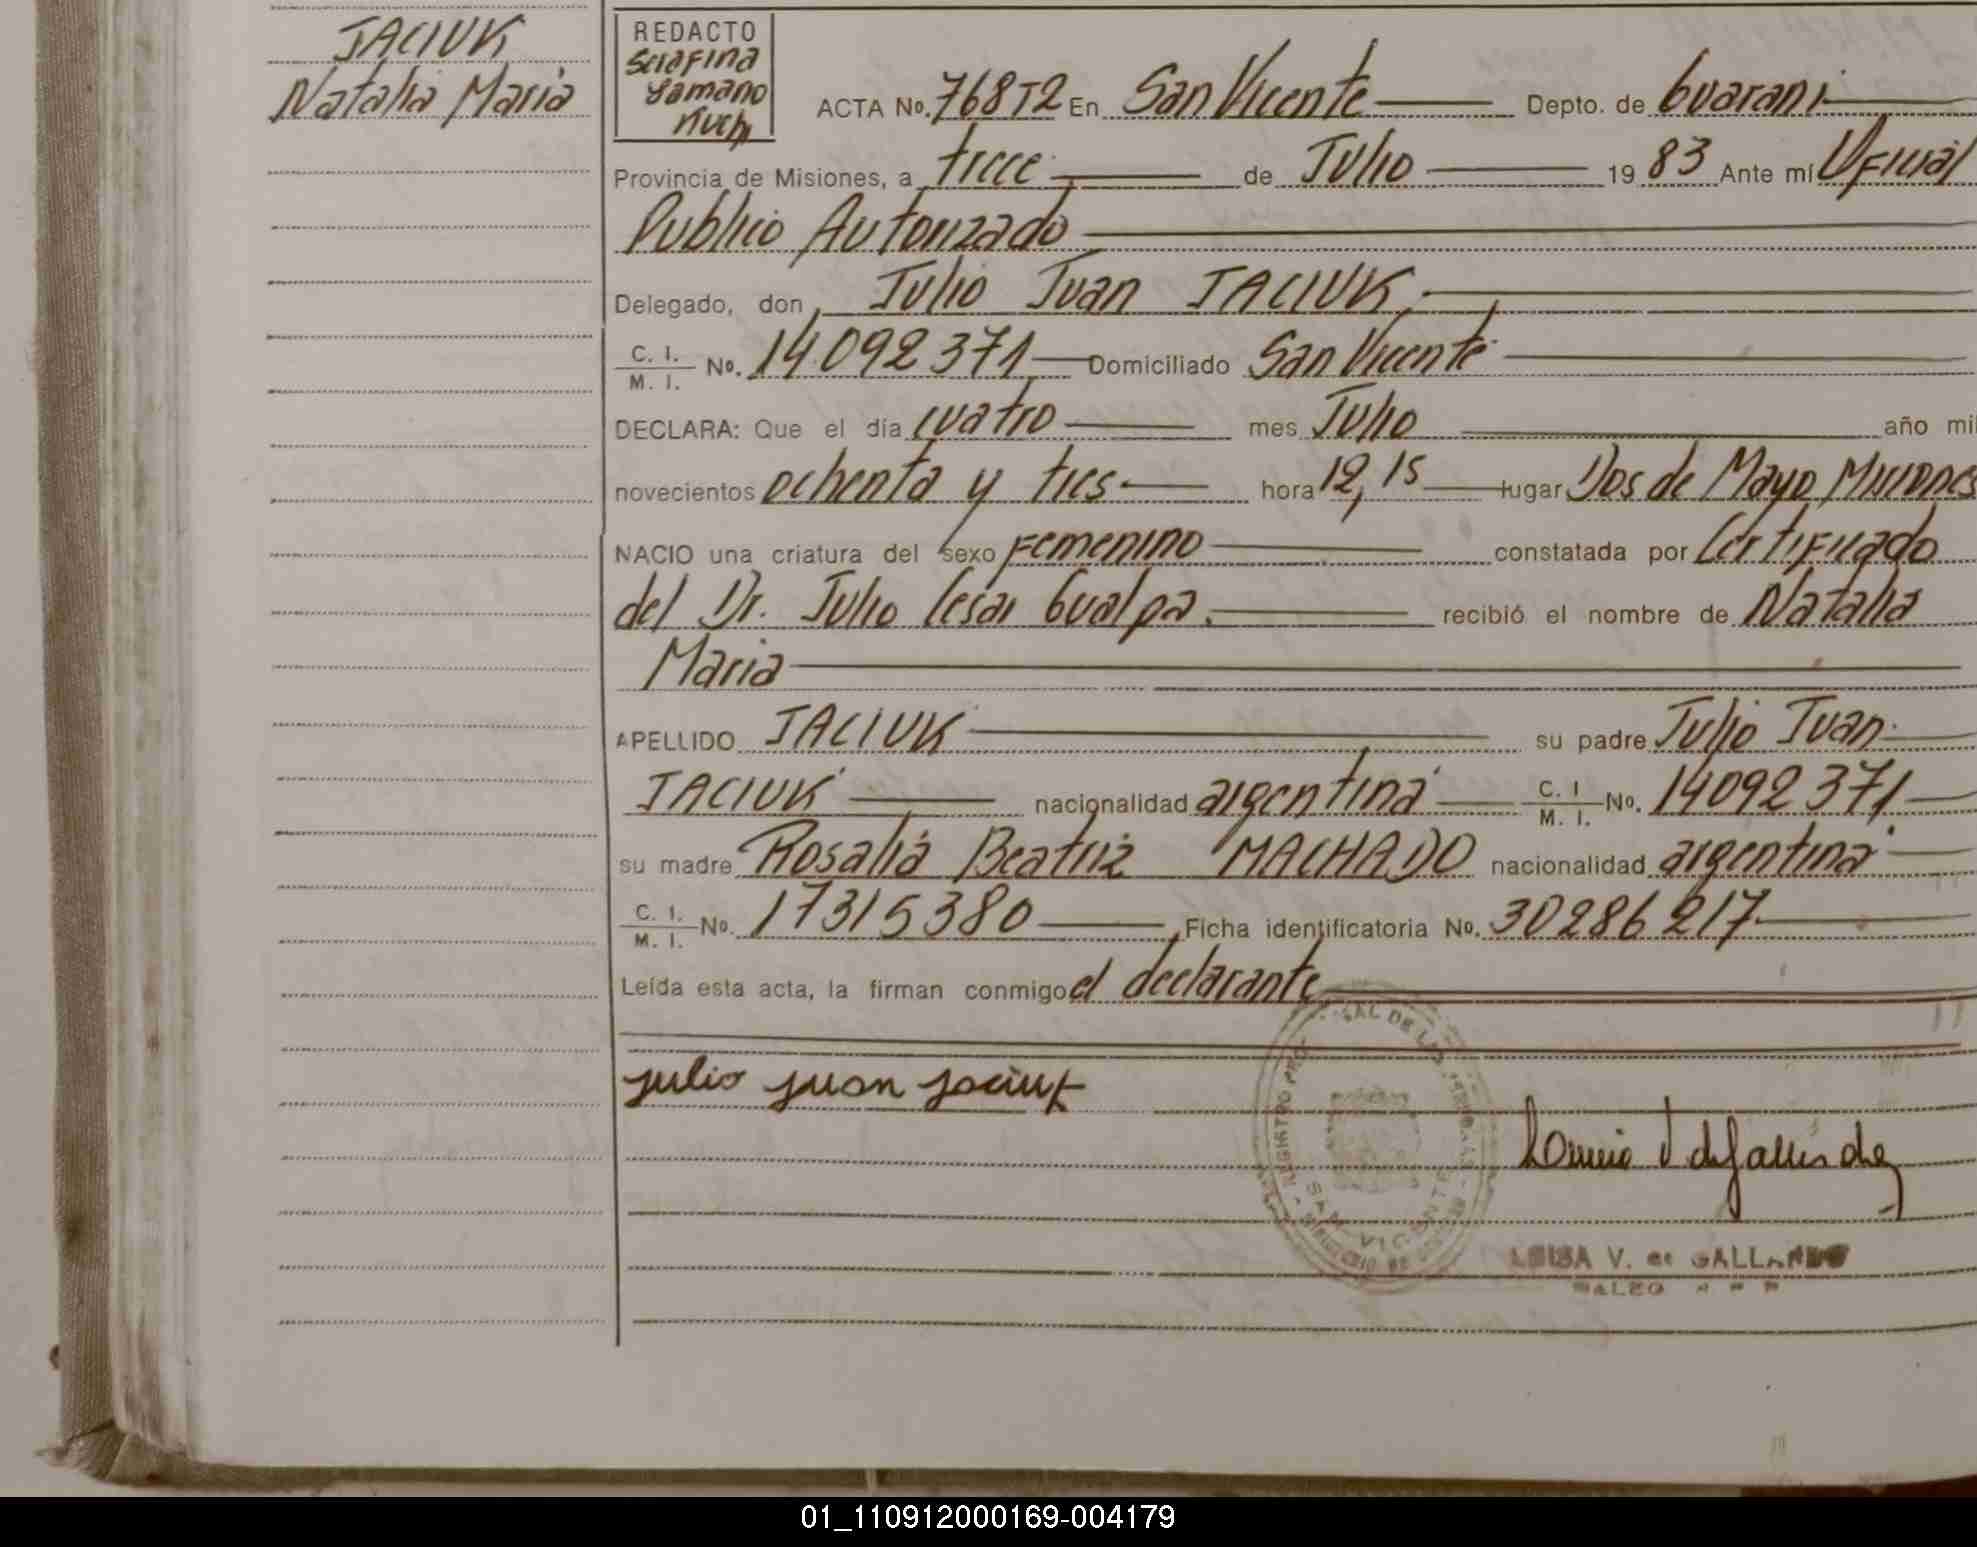 JACIUK
Natalia Maria
REDACTO
Serafina
Yamano
Kuchi
ACTA No. 768T2 En San Vicente Depto. de Guarani
Provincia de Misiones, a trece de Julio 1983 Ante mí Oficial
Publico Autorizado
Delegado, don Julio Juan JACIUK
C. I. / M. I. No. 14092371 Domiciliado San Vicente
DECLARA: Que el día cuatro mes Julio año mil
novecientos ochenta y tres hora 12,15 lugar Dos de Mayo Misiones
NACIO una criatura del sexo Femenino constatada por Certificado
del Dr. Julio Cesar Gualpa. recibió el nombre de Natalia
Maria
APELLIDO JACIUK su padre Julio Juan
JACIUK nacionalidad argentina C. I / M. I. No. 14092371
su madre Rosalia Beatriz MACHADO nacionalidad argentina
C. I. / M. I. No. 17315380 Ficha identificatoria No. 30286217
Leída esta acta, la firman conmigo el declarante
julio juan jaciuk
SAN VICENTE
LUISA V. de GALLARDO
01_110912000169-004179